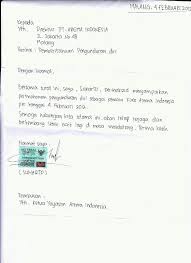 MALANG, 4 FEBRUARI 2012
Kepada
Yth. Direktur PT. AREMA INDONESIA
JL. Jakarta No 48
Malang
Perihal : Pemberitahuan Pengunduran diri
Dengan hormat,
Bersama surat ini saya, Suharto, bermaksud menyampaikan
permohonan pengunduran diri sebagai pelatih Arema Indonesia
per tanggal 4 Februari 2012.
Semoga hubungan kita selama ini akan tetap terjaga dan
berkembang lebih baik lagi di masa mendatang. Terima kasih.
Hormat saya,
(SUHARTO)
Tembusan :
Yth. Ketua Yayasan Arema Indonesia.